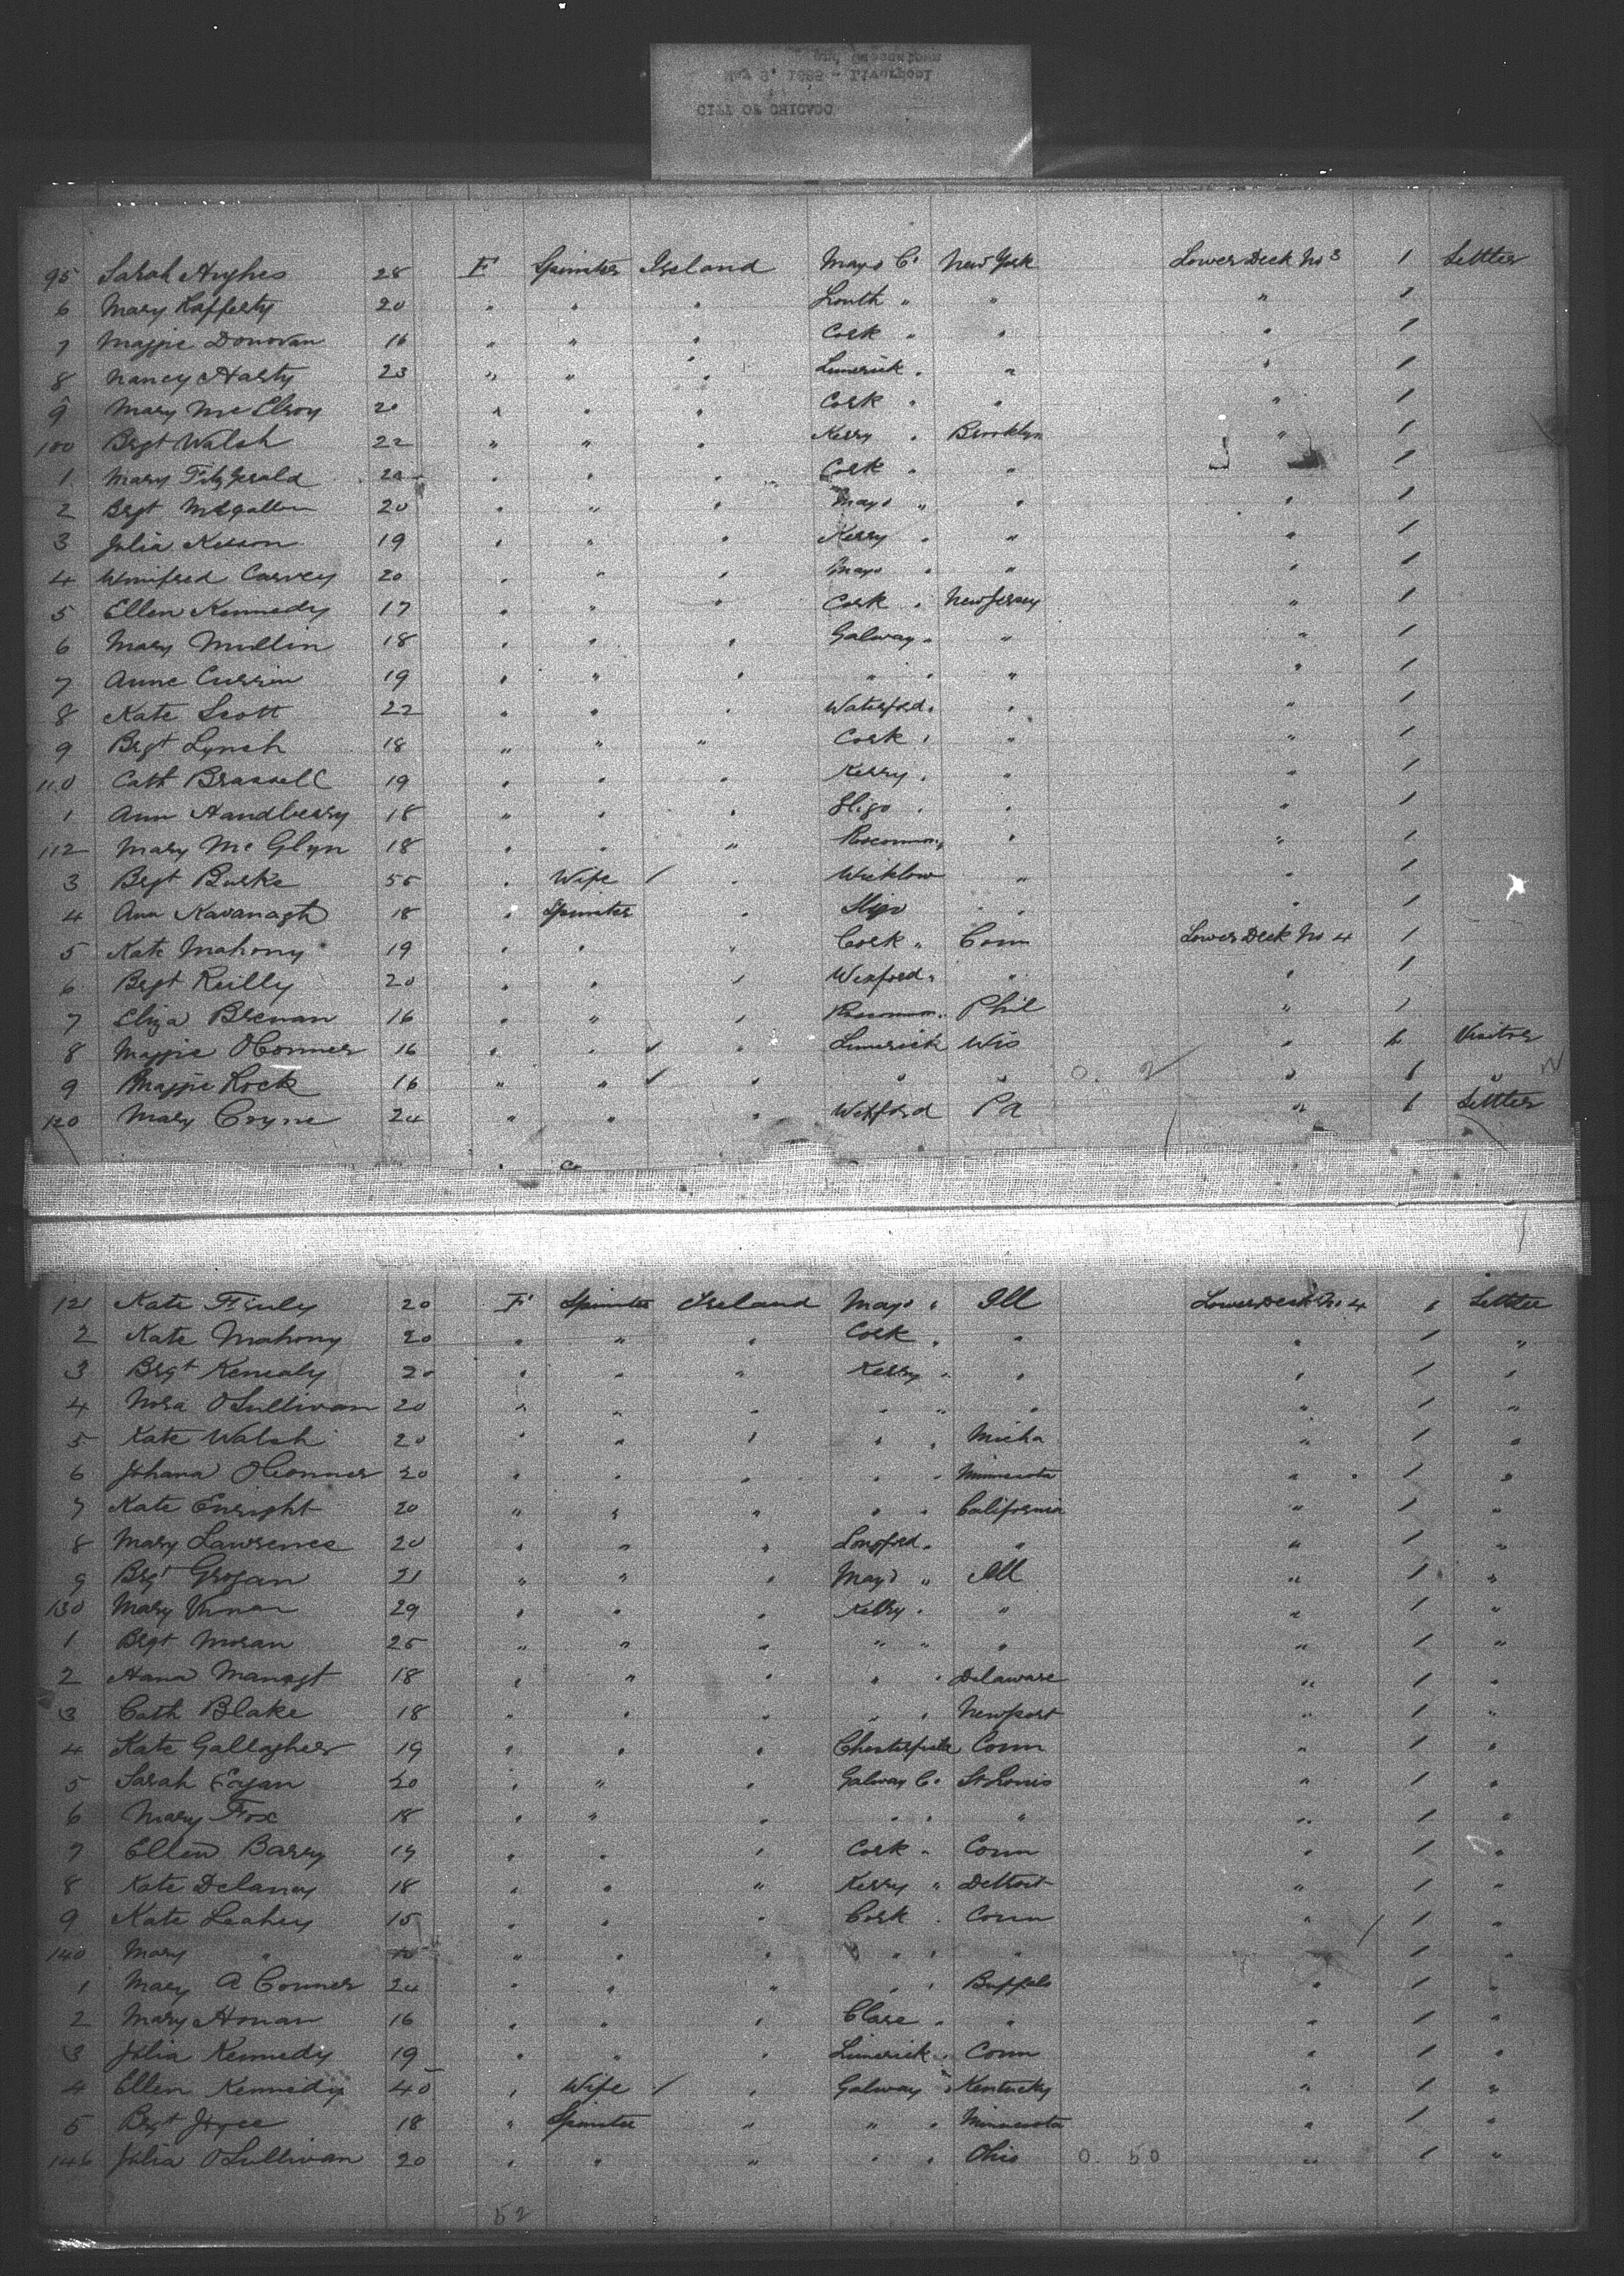 CITY OF CHICAGO
May 3, 1889 - Liverpool
and Queenstown
95 Sarah Hughes 28 F Spinster Ireland Mayo Co New York Lower Deck No 3 1 Settler
6 Mary Rafferty 20 " " " Louth " " " 1
7 Maggie Donovan 16 " " " Cork " " " 1
8 Nancy Harty 23 " " " Limerick " " " 1
9 Mary McElroy 20 " " " Cork " " " 1
100 Brgt Walsh 22 " " " Kerry " Brooklyn " 1
1 Mary FitzGerald 20 " " " Cork " " 1
2 Brgt 20 " " " Mayo " " " 1
3 Julia 19 " " " Kerry " " " 1
4 Winifred Carvey 20 " " " Mayo " " " 1
5 Ellen Kennedy 17 " " " Cork " New Jersey " 1
6 Mary Mullin 18 " " " Galway " " " 1
7 Anne Currin 19 " " " " " " " 1
8 Kate Scott 22 " " " Waterford " " " 1
9 Brgt Lynch 18 " " " Cork " " " 1
110 Cath Brassell 19 " " " Kerry " " " 1
1 Ann Handberry 18 " " " Sligo " " " 1
112 Mary McGlyn 18 " " " Roscommon " " " 1
3 Brgt Burke 55 " Wife / " Wicklow " " 1
4 Ann Kavanagh 18 " Spinster " Sligo " " " 1
5 Kate Mahony 19 " " " Cork " Conn Lower Deck No 4 1
6 Brgt Reilly 20 " " " Wexford " " " 1
7 Eliza Brenan 16 " " " Roscommon " Phil " 1
8 Maggie OConner 16 " " ✓ " Limerick Wis " 1 Visitor
9 Maggie Lock 16 " " ✓ " " " 0. 2 " 1 " N
120 Mary Coyne 24 " " " Wexford Pa " 1 Settler
121 Kate Finly 20 F Spinster Ireland Mayo " Ill Lower Deck No 4 1 Settler
2 Kate Mahony 20 " " " Cork " " " 1 "
3 Brgt Kenealy 20 " " " Kerry " " " 1 "
4 Nora OSullivan 20 " " " " " " " 1 "
5 Kate Walsh 20 " " " " " Micha " 1 "
6 Johana OConner 20 " " " " " Minnesota " 1 "
7 Kate Enright 20 " " " " " California " 1 "
8 Mary Lawrence 20 " " " Longford " " " 1 "
9 Brgt Grogan 21 " " " Mayo " Ill " 1 "
130 Mary 29 " " " Kerry " " " 1 "
1 Brgt Moran 25 " " " " " " " 1 "
2 Hana 18 " " " " " Delaware " 1 "
3 Cath Blake 18 " " " " " Newport " 1 "
4 Kate Gallagher 19 " " " Chesterfield Conn " 1 "
5 Sarah Egan 20 " " " Galway Co St Louis " 1 "
6 Mary Fox 18 " " " " " " " 1 "
7 Ellen Barry 19 " " " Cork " Conn " 1 "
8 Kate Delaney 18 " " " Kerry " Detroit " 1 "
9 Kate Leahey 15 " " " Cork " Conn " 1 "
140 Mary " " " " " " " " 1 "
1 Mary A Conner 24 " " " " " Buffalo " 1 "
2 Mary Honan 16 " " " Clare " " " 1 "
3 Julia Kennedy 19 " " " Limerick " Conn " 1 "
4 Ellen Kennedy 40 " Wife / " Galway " Kentucky " 1 "
5 Brgt Joyce 18 " Spinster " " " Minnesota " 1 "
146 Julia OSullivan 20 " " " " " Ohio 0. 50 " 1 "
52